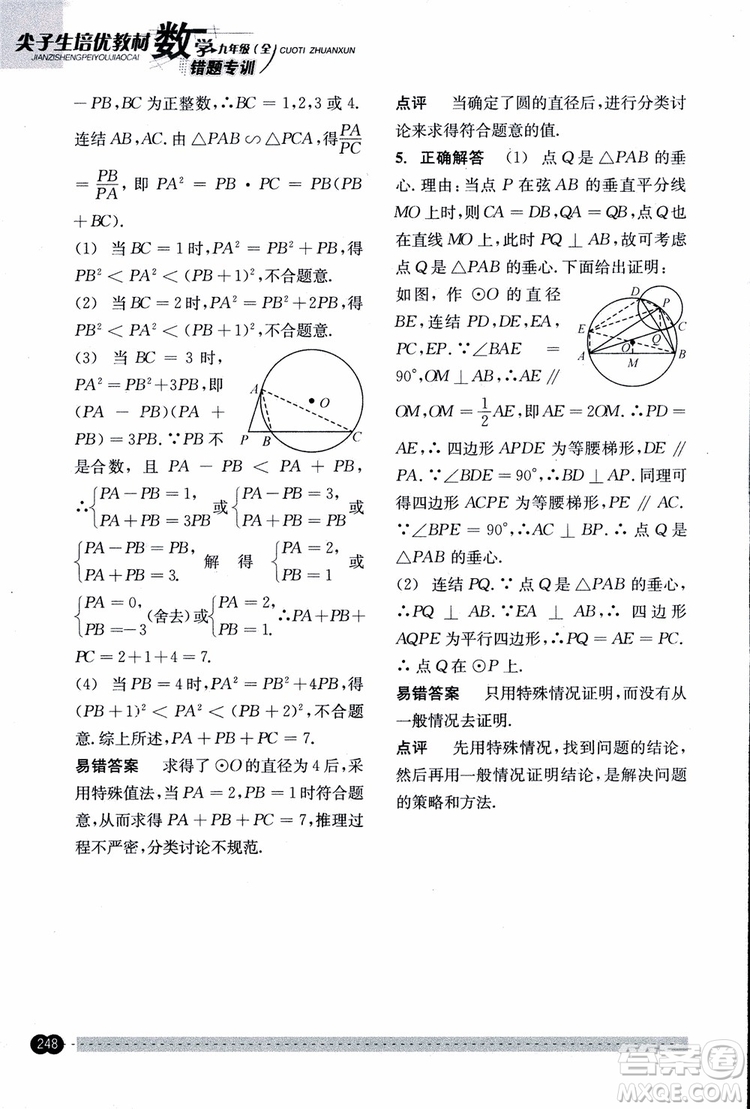 尖子生培优教材 数学 九年级(全) CUOTI ZHUANXUN
JIANZISHENGPEIYOUJIAOCAI 错题专训
-PB,BC 为正整数,∴BC=1,2,3 或 4.
连结 AB,AC. 由 △PAB∽△PCA,得 PA/PC
=PB/PA,即 PA²=PB·PC=PB(PB
+BC).
(1) 当 BC=1 时,PA²=PB²+PB,得
PB²<PA²<(PB+1)²,不合题意.
(2) 当 BC=2 时,PA²=PB²+2PB,得
PB²<PA²<(PB+1)²,不合题意.
(3) 当 BC = 3 时,
PA²=PB²+3PB,即
(PA - PB)(PA +
PB)=3PB. ∵PB 不
是合数, 且 PA - PB < PA + PB,
∴{PA-PB=1, PA+PB=3PB 或{PA-PB=3, PA+PB=PB 或
{PA-PB=PB, PA+PB=3. 解 得 {PA=2, PB=1 或
{PA=0, PB=-3 (舍去)或{PA=2, PB=1. ∴PA+PB+
PC=2+1+4=7.
(4) 当 PB=4 时,PA²=PB²+4PB,得
(PB+1)²<PA²<(PB+2)²,不合题
意. 综上所述,PA+PB+PC=7.
易错答案 求得了 ⊙O 的直径为 4 后,采
用特殊值法,当 PA=2,PB=1 时符合题
意,从而求得 PA+PB+PC=7,推理过
程不严密,分类讨论不规范.
A
O
P
B
C
点评 当确定了圆的直径后,进行分类讨
论来求得符合题意的值.
5. 正确解答 (1) 点 Q 是 △PAB 的垂
心. 理由:当点 P 在弦 AB 的垂直平分线
MO 上时,则 CA=DB,QA=QB,点 Q 也
在直线 MO 上,此时 PQ⊥AB,故可考虑
点 Q 是 △PAB 的垂心. 下面给出证明:
如图,作 ⊙O 的直径
BE,连结 PD,DE,EA,
PC,EP. ∵∠BAE=
90°,OM⊥AB,∴AE∥
OM,OM=1/2AE,即 AE=2OM. ∴PD=
AE,∴ 四边形 APDE 为等腰梯形,DE∥
PA. ∵∠BDE=90°,∴BD⊥AP. 同理可
得四边形 ACPE 为等腰梯形,PE∥AC.
∵∠BPE=90°,∴AC⊥BP. ∴ 点 Q 是
△PAB 的垂心.
(2) 连结 PQ. ∵ 点 Q 是 △PAB 的垂心,
∴PQ ⊥ AB. ∵EA ⊥ AB, ∴ 四边形
AQPE 为平行四边形,∴PQ=AE=PC.
∴ 点 Q 在 ⊙P 上.
易错答案 只用特殊情况证明,而没有从
一般情况去证明.
点评 先用特殊情况,找到问题的结论,
然后再用一般情况证明结论,是解决问题
的策略和方法.
D
P
E
C
Q
O
A
M
B
248
答案圈
MXQE.COM